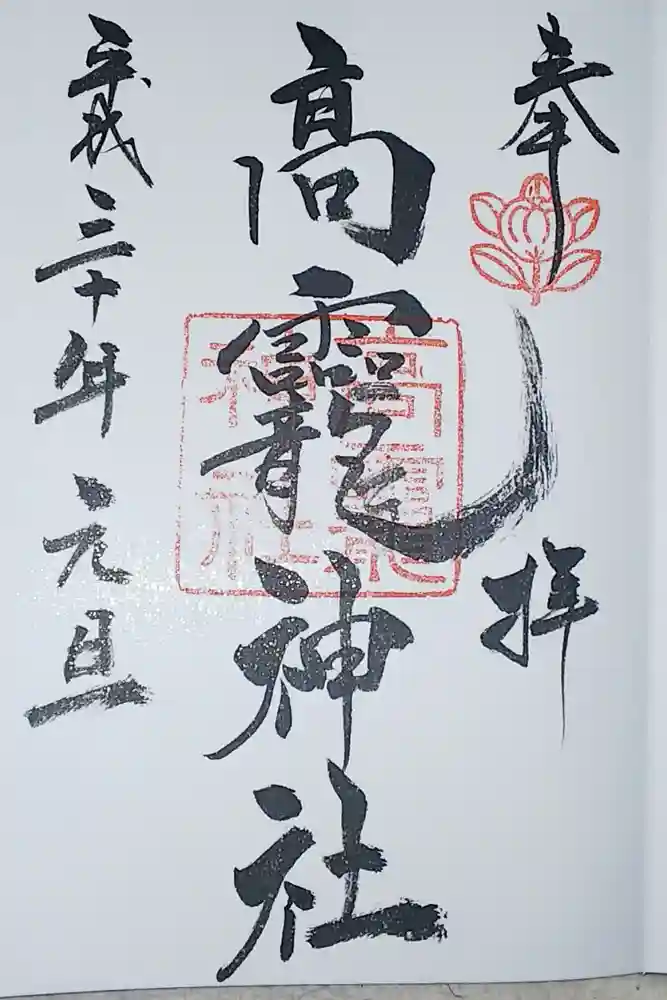 奉拝
高龗神社
平成三十年元旦
高龗
神社